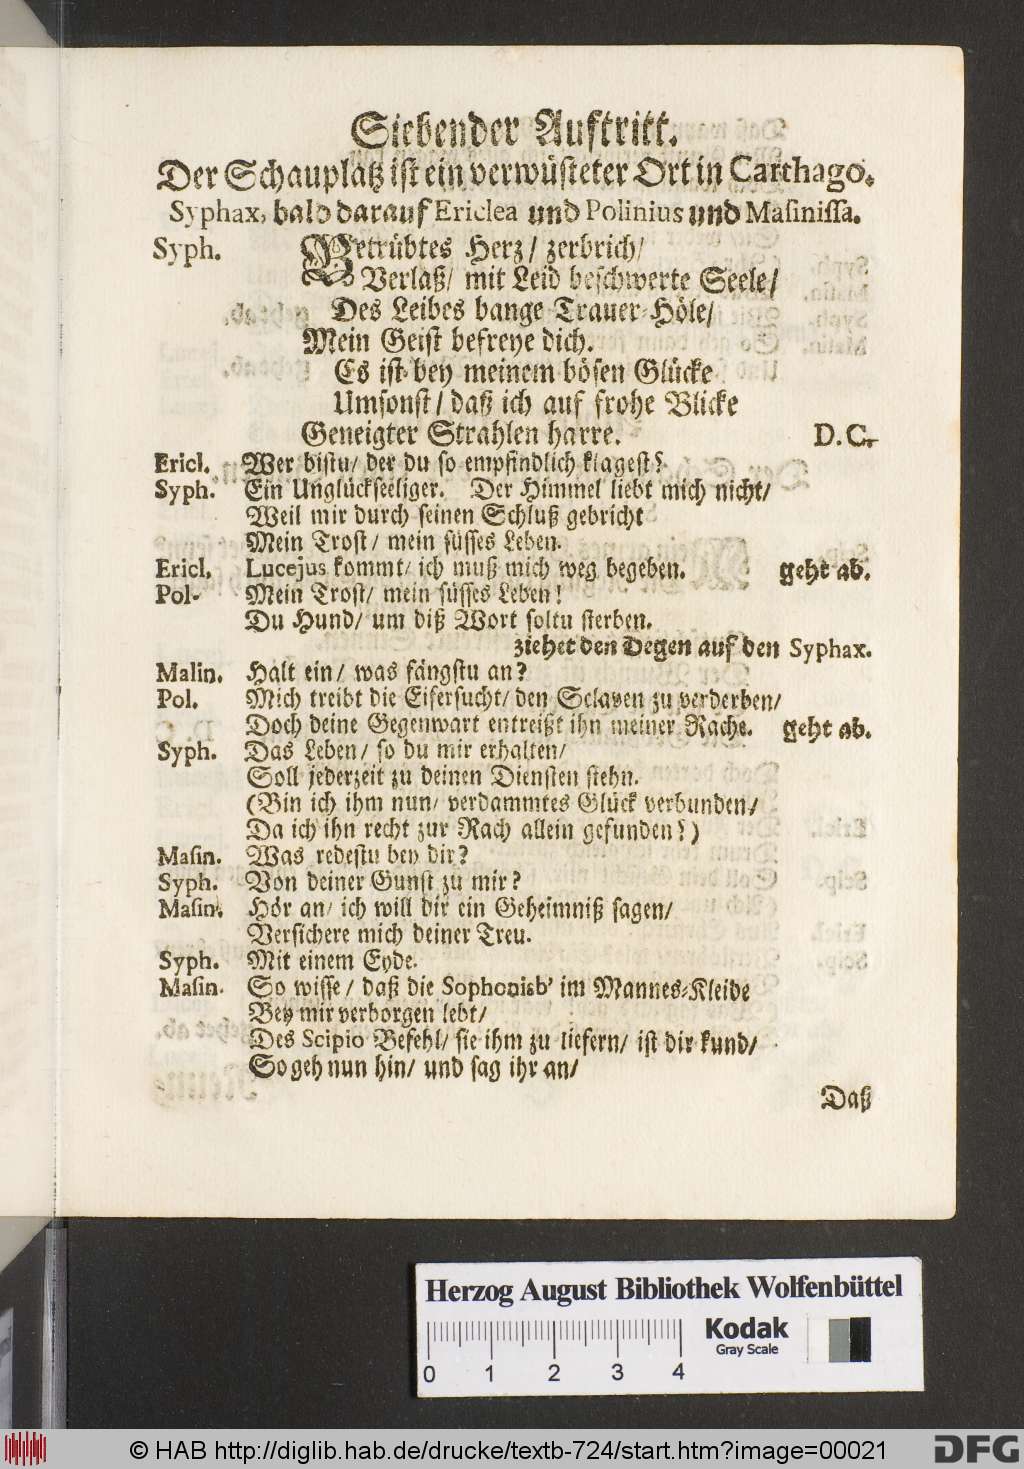 Siebender Auftritt.
Der Schauplatz ist ein verwüsteter Ort in Carthago.
Syphax, bald darauf Ericlea und Polinius und Masinissa.
Syph. Betrübtes Herz/ zerbrich/
Verlaß/ mit Leid beschwerte Seele/
Des Leibes bange Trauer-Höle/
Mein Geist befreye dich.
Es ist bey meinem bösen Glücke
Umsonst/ daß ich auf frohe Blicke
Geneigter Strahlen harre. D. C.
Ericl. Wer bistu/ der du so empfindlich klagest?
Syph. Ein Unglückseeliger. Der Himmel liebt mich nicht/
Weil mir durch seinen Schluß gebricht
Mein Trost/ mein süsses Leben.
Ericl. Lucejus kommt/ ich muß mich weg begeben. geht ab.
Pol. Mein Trost/ mein süsses Leben!
Du Hund/ um diß Wort soltu sterben.
ziehet den Degen auf den Syphax.
Masin. Halt ein/ was fängstu an?
Pol. Mich treibt die Eifersucht/ den Sclaven zu verderben/
Doch deine Gegenwart entreißt ihn meiner Rache. geht ab.
Syph. Das Leben/ so du mir erhalten/
Soll jederzeit zu deinen Diensten stehn.
(Bin ich ihm nun/ verdammtes Glück verbunden/
Da ich ihn recht zur Rach allein gefunden?)
Masin. Was redestu bey dir?
Syph. Von deiner Gunst zu mir?
Masin. Hör an/ ich will dir ein Geheimniß sagen/
Versichere mich deiner Treu.
Syph. Mit einem Eyde.
Masin. So wisse/ daß die Sophonisb' im Mannes-Kleide
Bey mir verborgen lebt/
Des Scipio Befehl/ sie ihm zu liefern/ ist dir kund/
So geh nun hin/ und sag ihr an/
Daß
Herzog August Bibliothek Wolfenbüttel
Kodak
Gray Scale
0 1 2 3 4
© HAB http://diglib.hab.de/drucke/textb-724/start.htm?image=00021
DFG